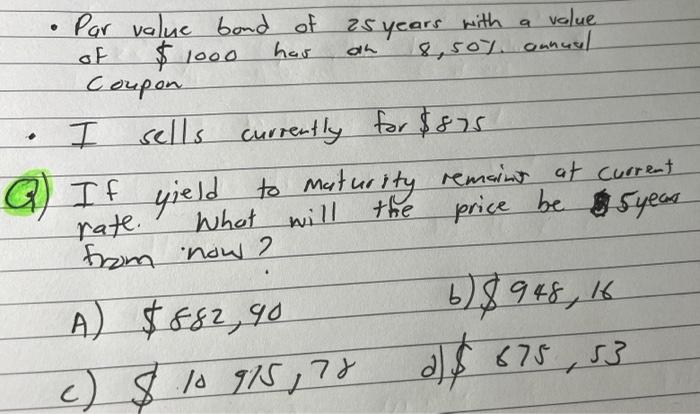 • Par value bond of 25 years with a value
of $ 1000 has an 8,50% annual
Coupon
• I sells currently for $875
Q) If yield to maturity remains at current
rate. What will the price be 5 years
from now?
A) $882,90
b) $948,16
c) $ 10 915,78
d) $ 675,53